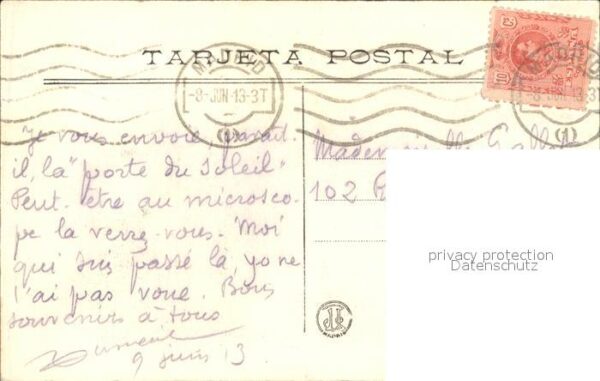 TARJETA POSTAL
MADRID
-8-JUN-13-3T
(1)
MADRID
-8-JUN-13-
(1)
10
Je vous envoie, parait.
il, la "porte du Soleil"
Peut-être au microsco.
pe la verrez-vous. Moi
qui suis passé là, yo ne
l'ai pas voue. Bons
souvenirs à tous
9 juin 13
Mademoiselle
102
privacy protection
Datenschutz
MADRID